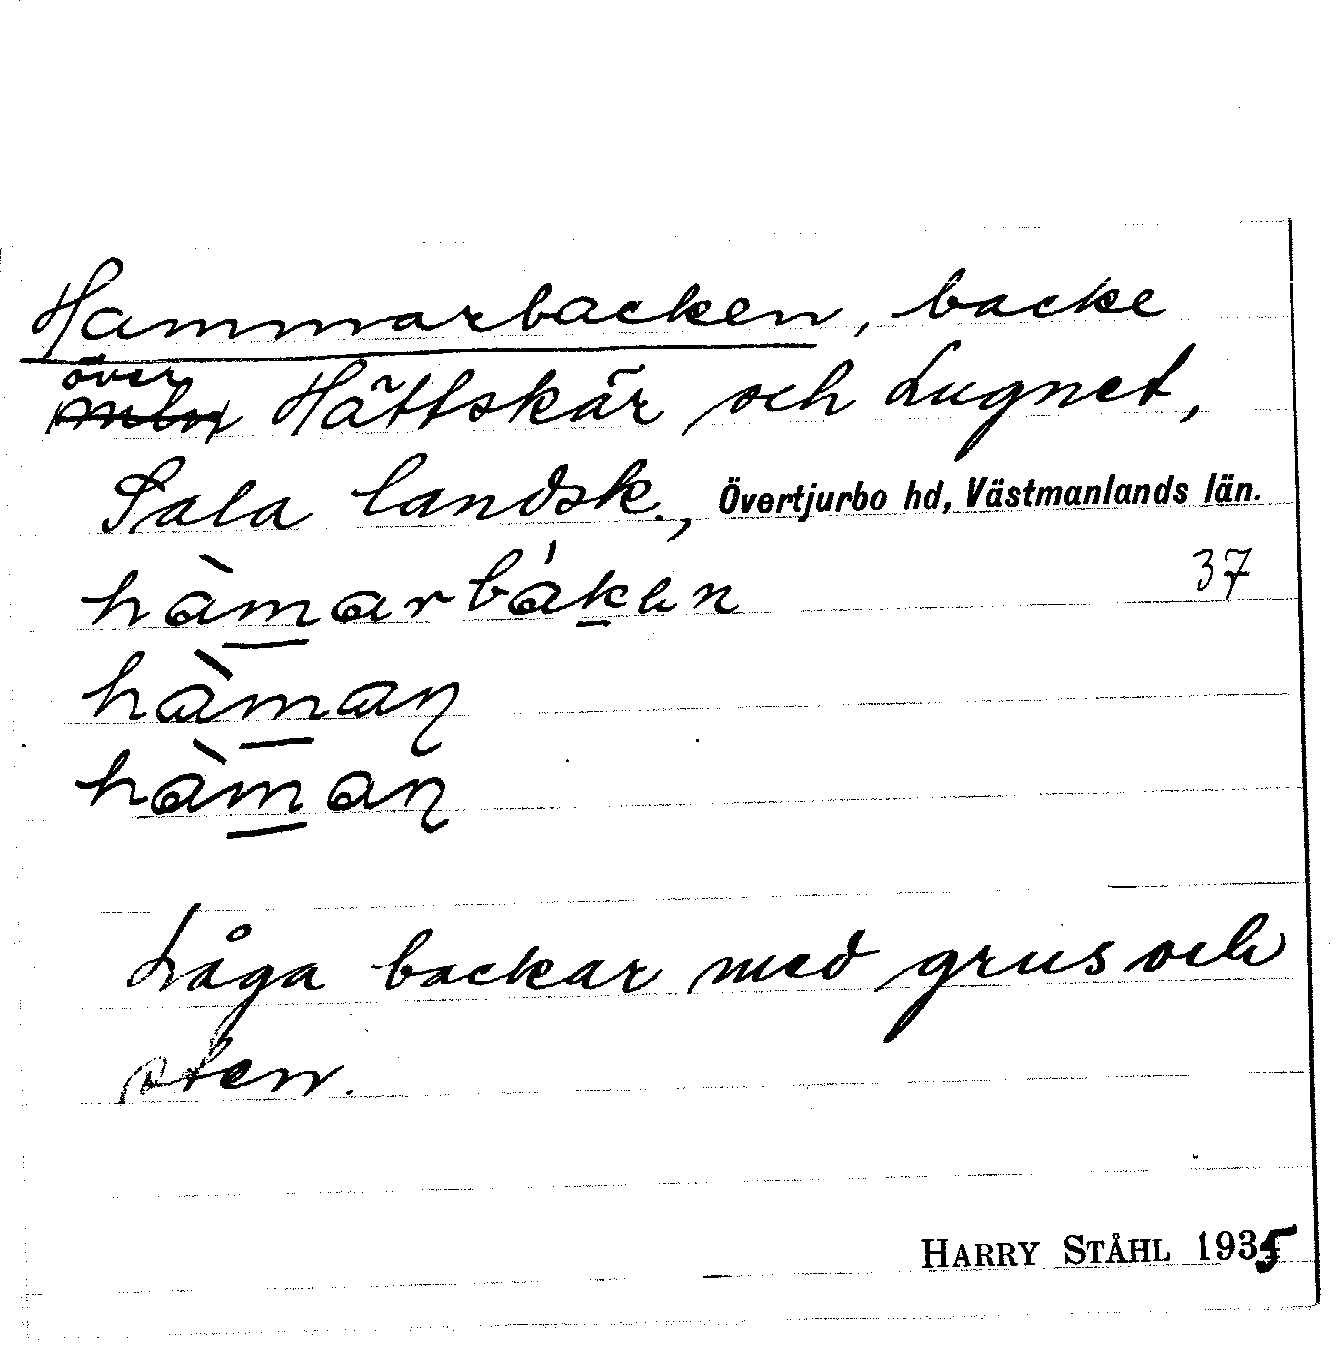 Hammarbacken, backe
över
mln Hättskär och Lugnet,
Sala landsk., Övertjurbo hd, Västmanlands län.
hàmarbákən 37
hàmaɳ
hàmaɳ
Låga backar med grus och
sten.
HARRY STÅHL 1935